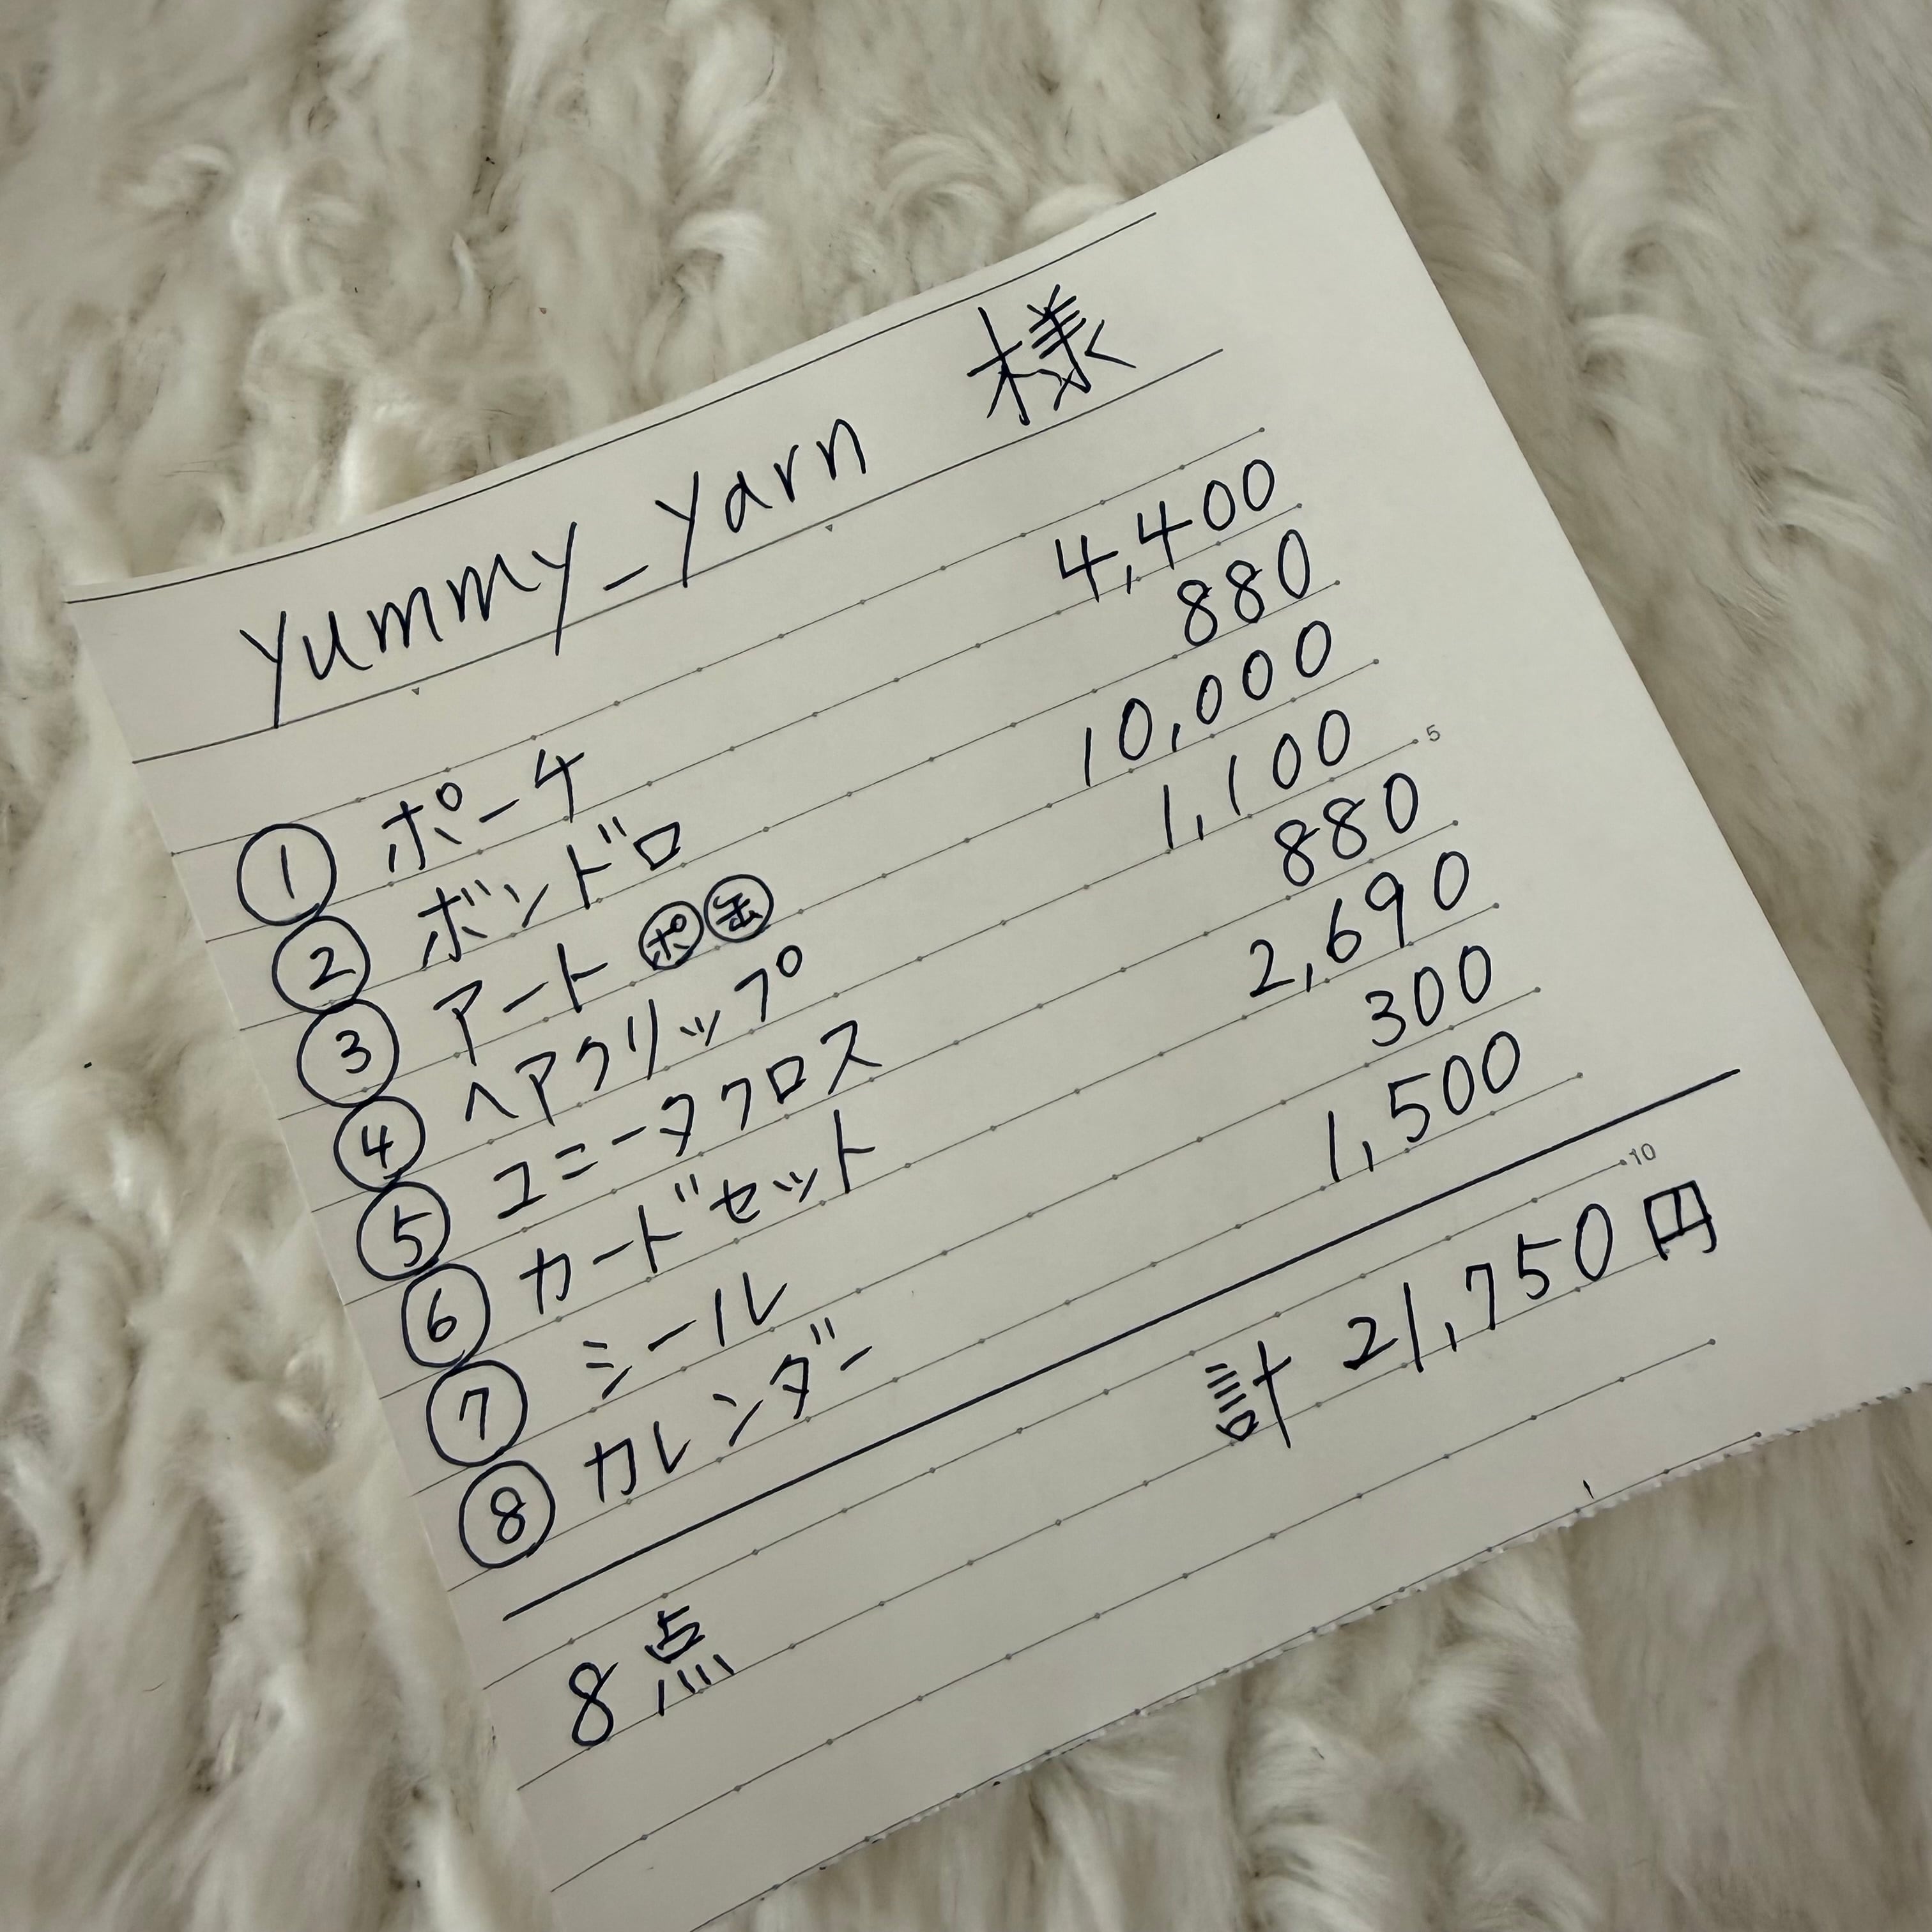 yummy_yarn 様
① ポーチ 4,400
② ボンドロ 880
③ アート ㋭゚ ㊎缶 10,000
④ ヘアクリップ 1,100
⑤ ユニータクロス 880
⑥ カードセット 2,690
⑦ シール 300
⑧ カレンダー 1,500
5
10
計 21,750円
8点